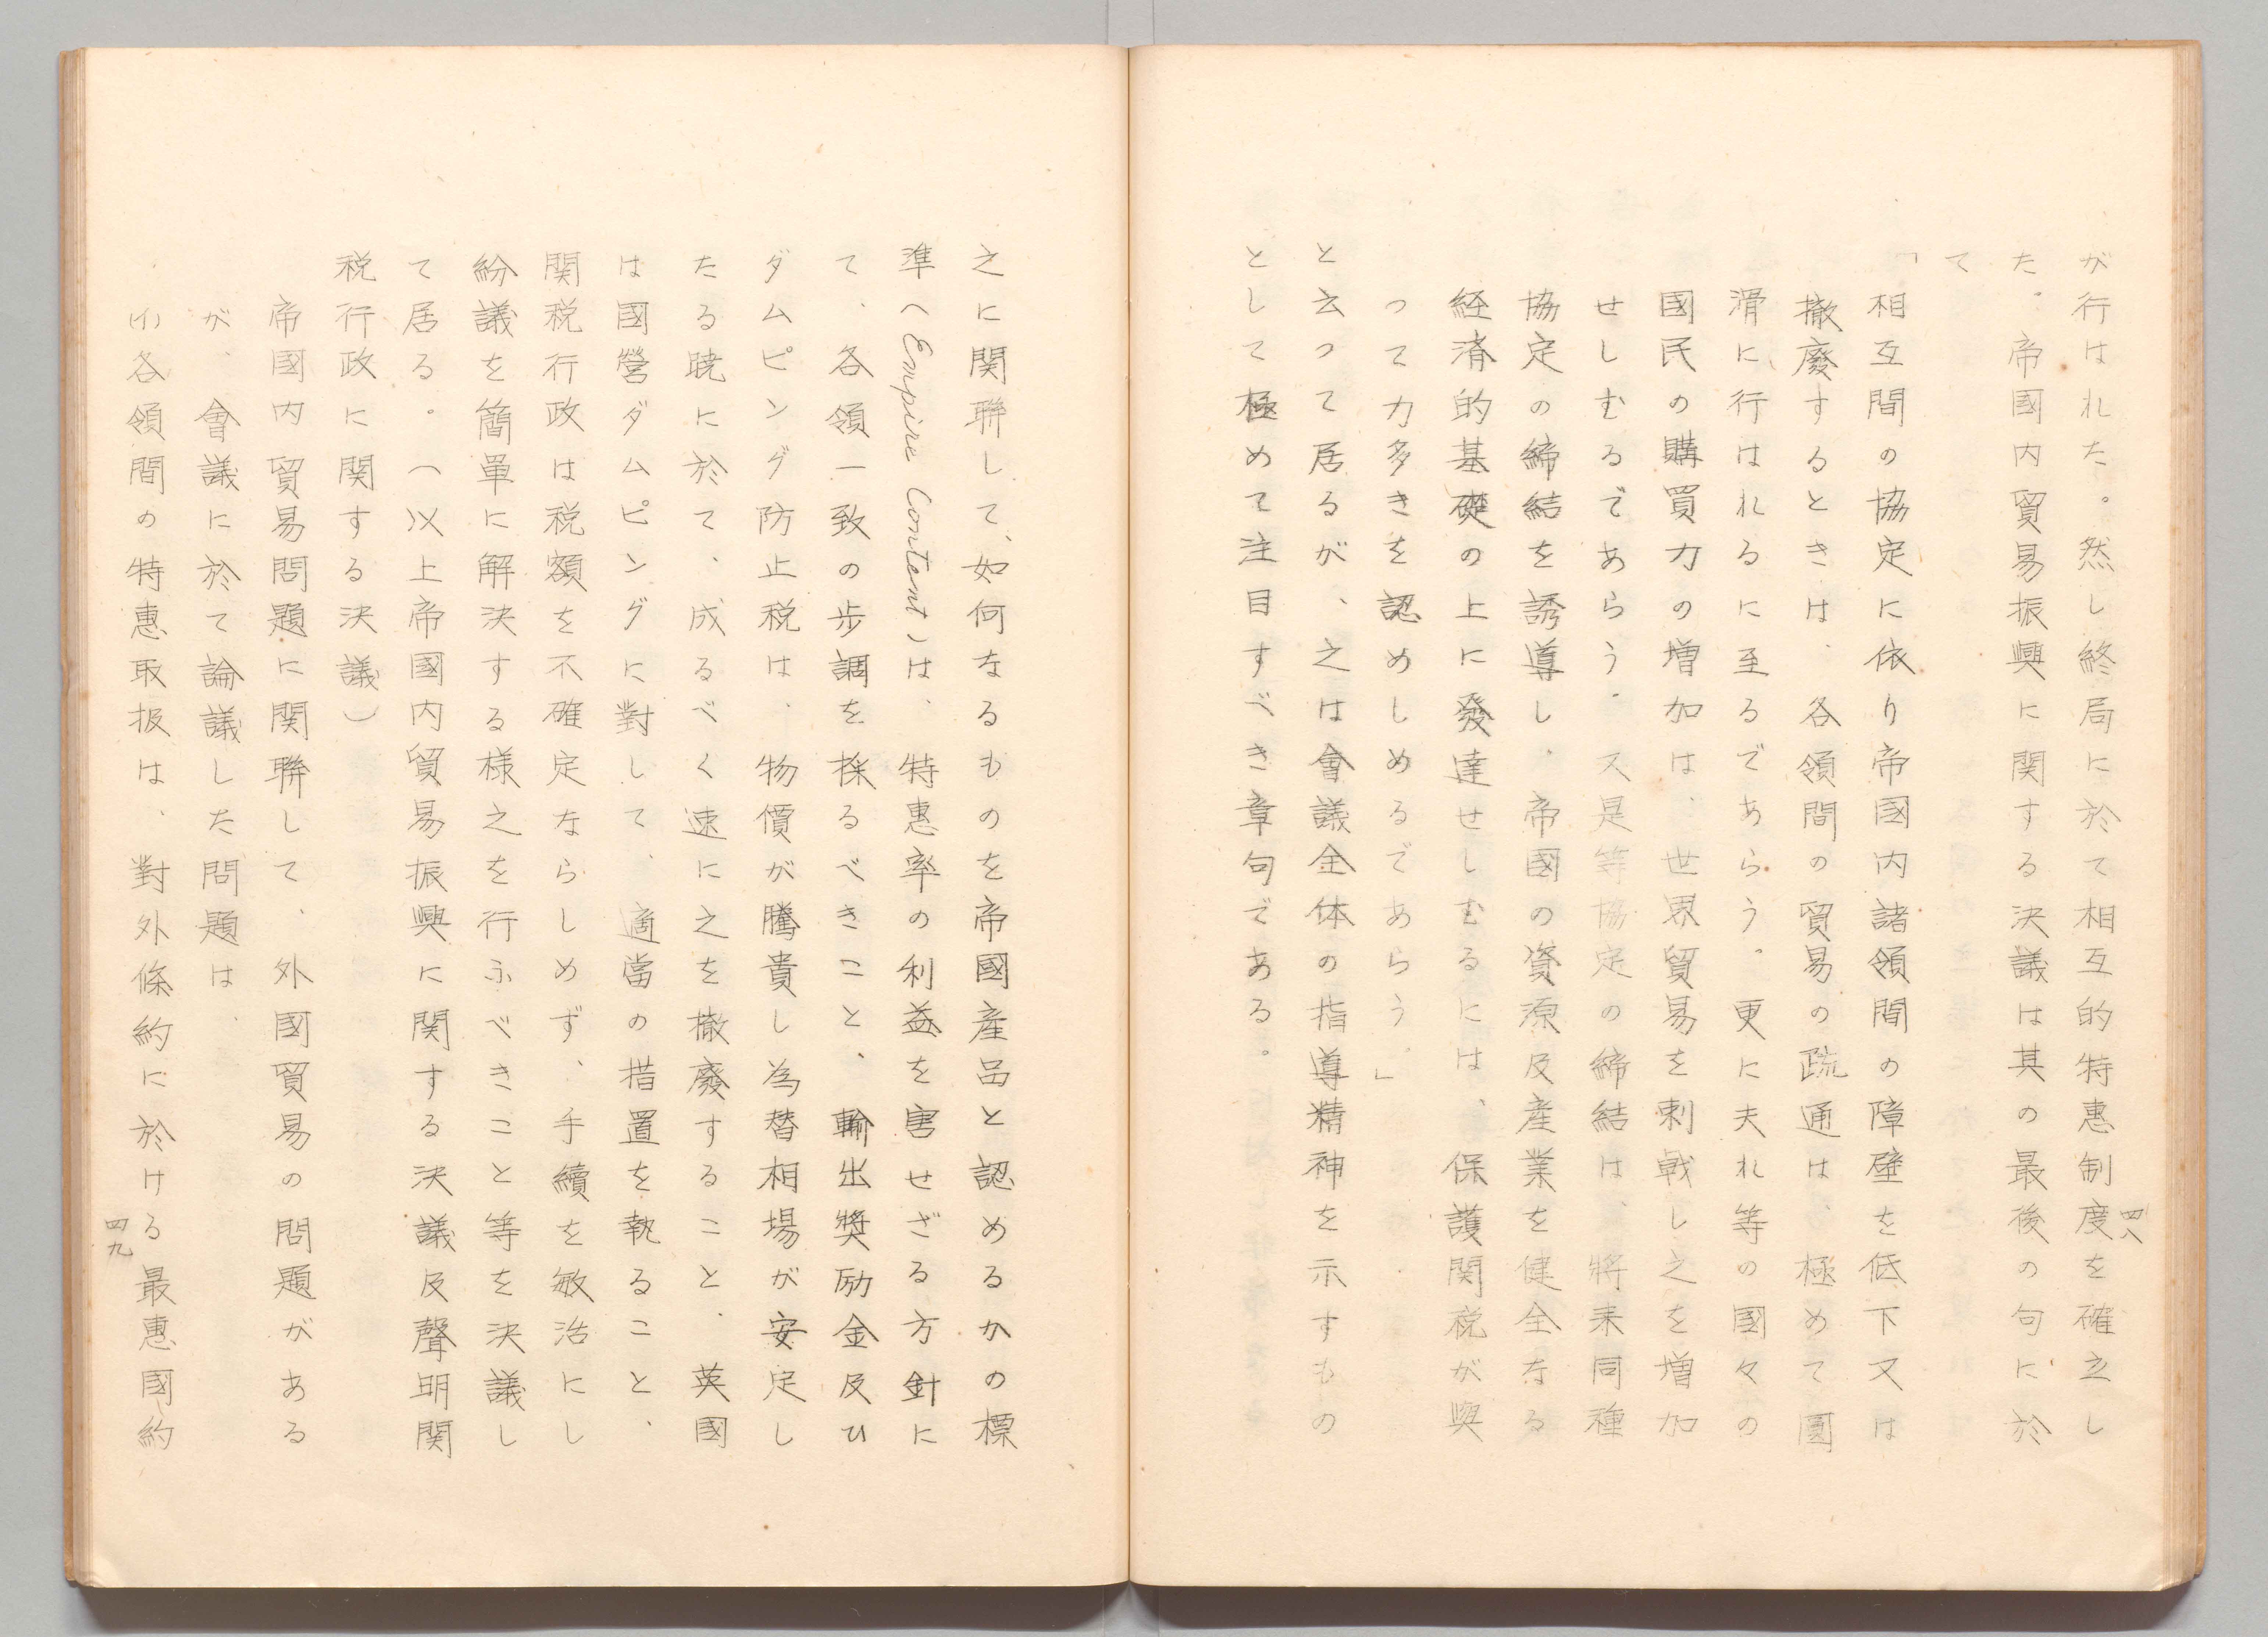 が行はれた。然し終局に於て相互的特惠制度を確立し
た。帝國内貿易振興に関する決議は其の最後の句に於
て
「相互間の協定に依り帝國内諸領間の障壁を低下又は
撤廢するときは、各領間の貿易の疏通は、極めて圓
滑に行はれるに至るであらう。更に夫れ等の國々の
國民の購買力の増加は、世界貿易を刺戟し之を増加
せしむるであらう。又是等協定の締結は、將来同種
協定の締結を誘導し、帝國の資源及産業を健全なる
経済的基礎の上に發達せしむるには、保護関税が與
つて力多きを認めしめるであらう。」
と云つて居るが、之は會議全体の指導精神を示すもの
として極めて注目すべき章句である。
四八
之に関聯して、如何なるものを帝國産品と認めるかの標
準（Empire Content）は、特惠率の利益を害せざる方針に
て、各領一致の歩調を採るべきこと、輸出奨励金及ひ
ダムピング防止税は、物價が騰貴し為替相場が安定し
たる暁に於て、成るべく速に之を撤廢すること、英國
は國營ダムピングに對して、適當の措置を執ること、
関税行政は税額を不確定ならしめず、手續を敏治にし
紛議を簡單に解決する様之を行ふべきこと等を決議し
て居る。（以上帝國内貿易振興に関する決議及聲明関
税行政に関する決議）
帝國内貿易問題に関聯して、外國貿易の問題がある
が、會議に於て論議した問題は、
(イ)各領間の特惠取扱は、對外條約に於ける最惠國約
四九